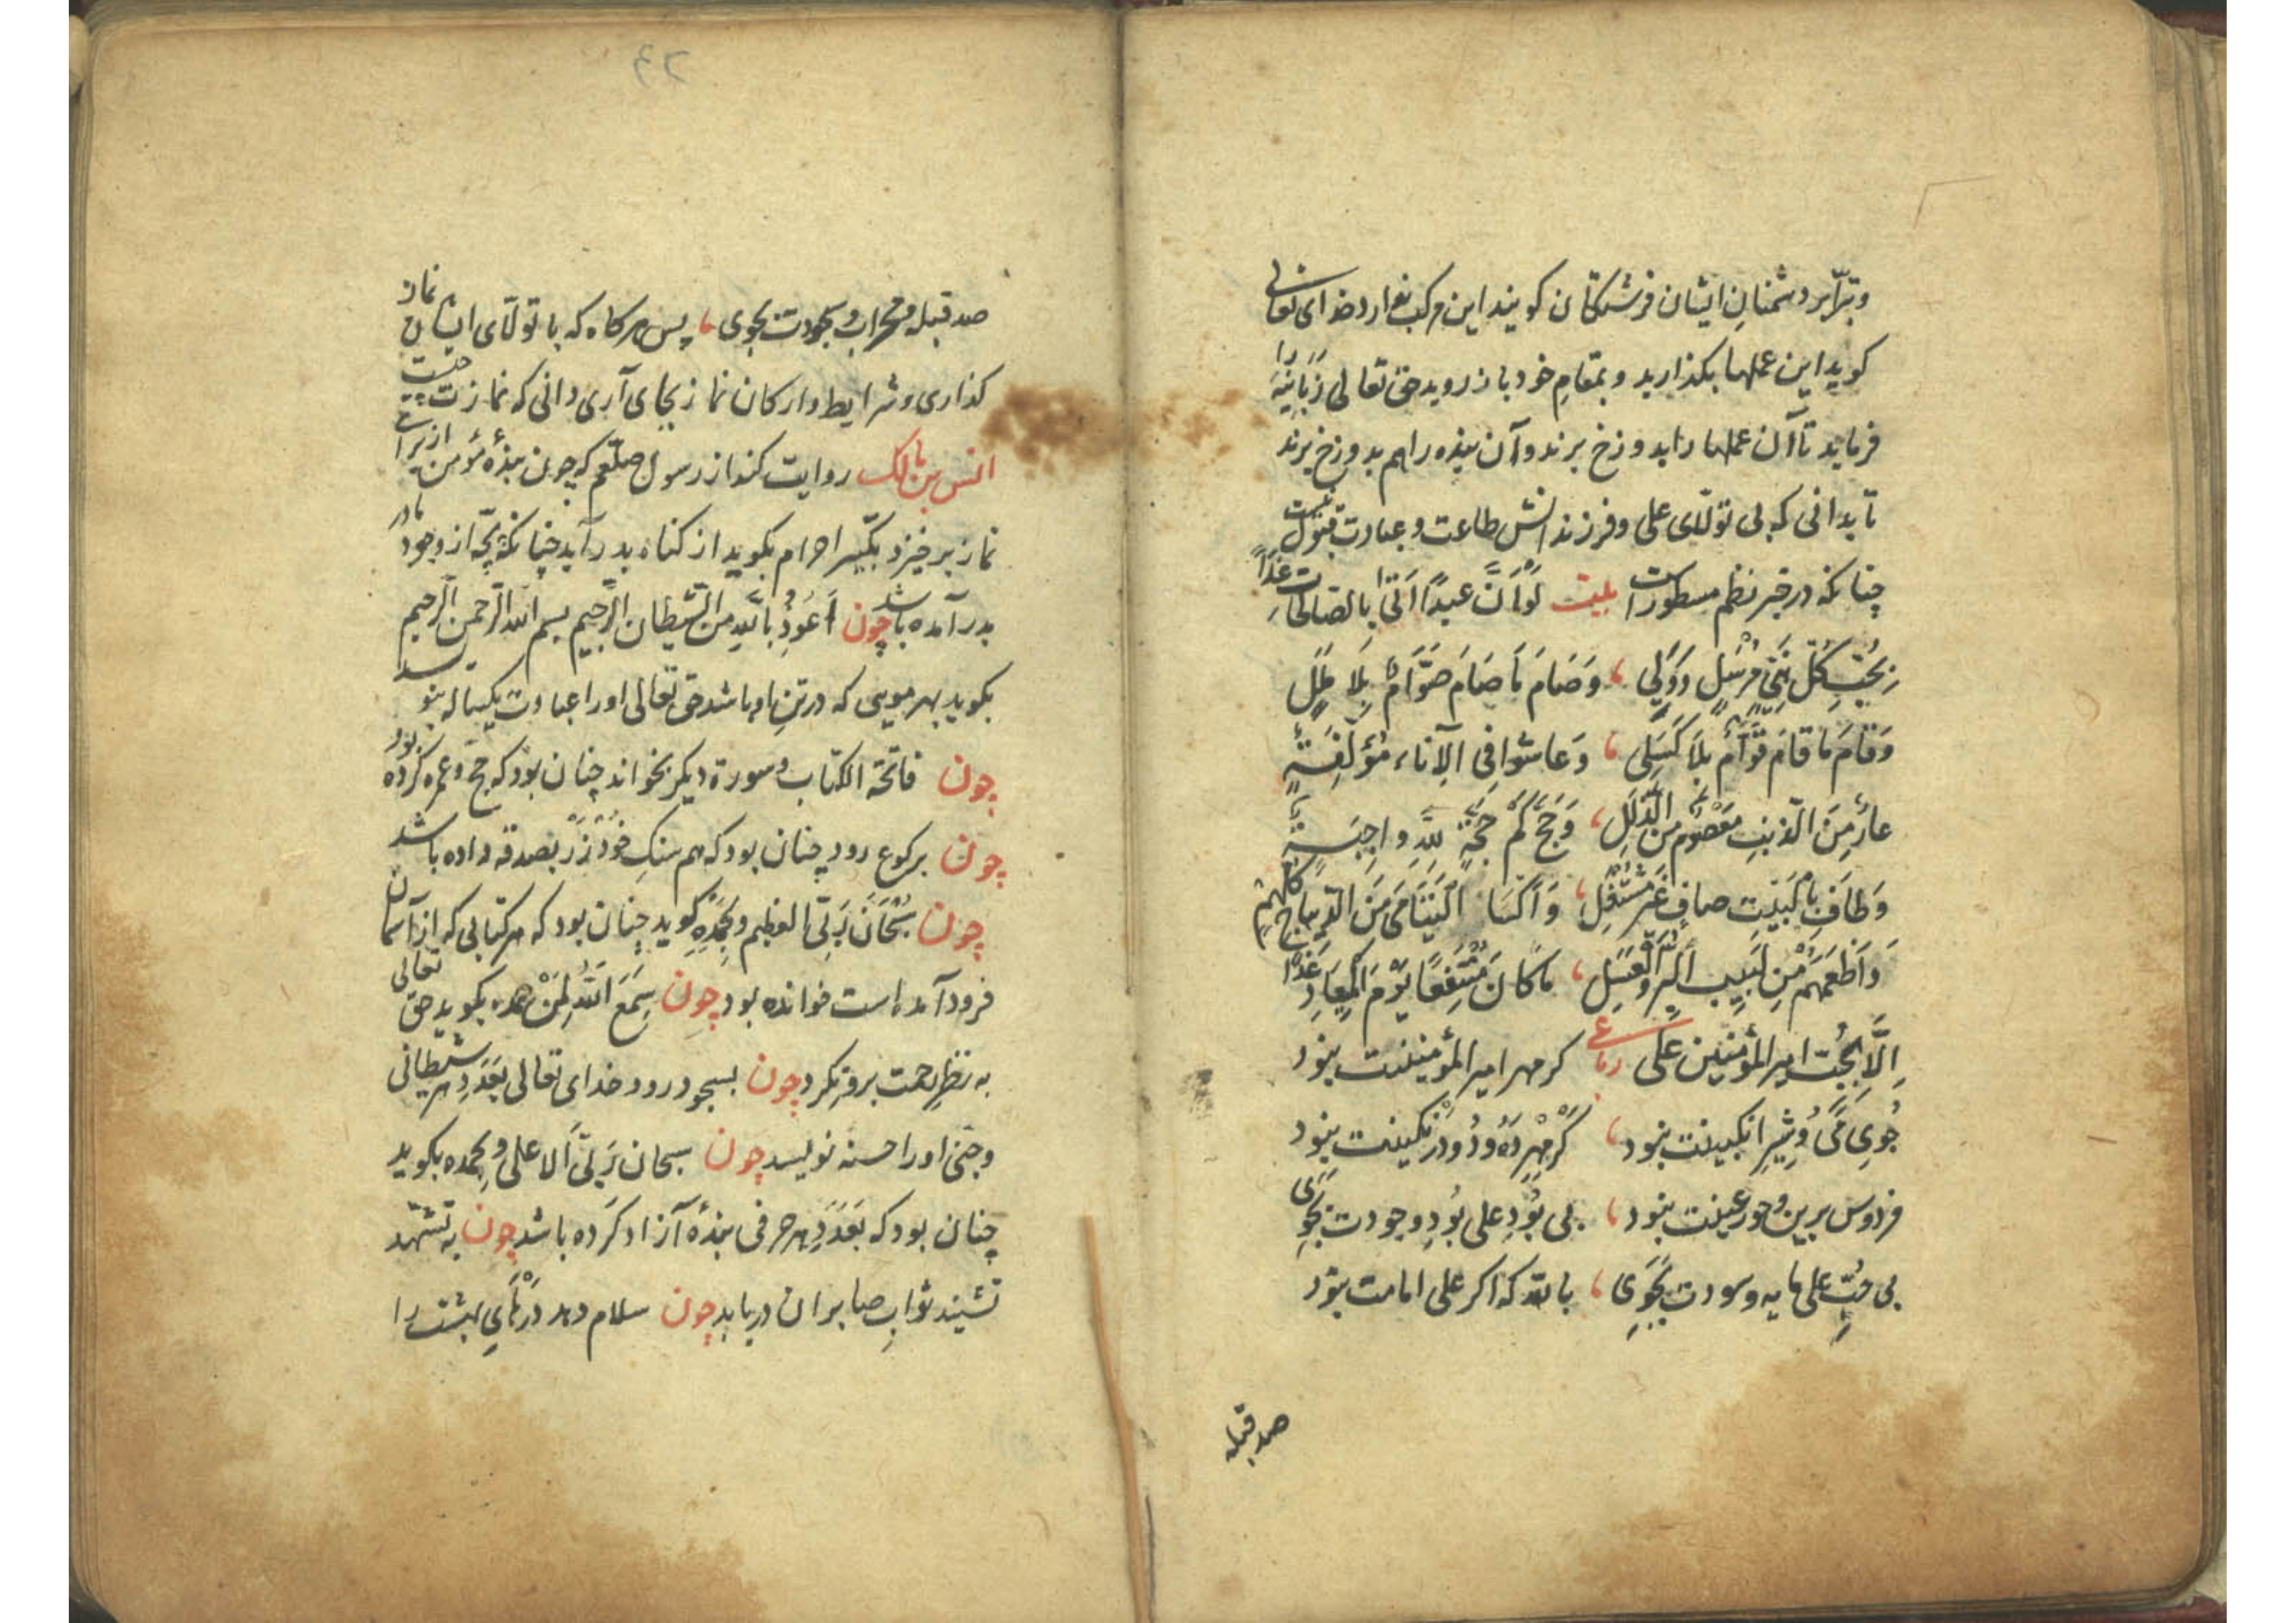 وتبرّا بر دشمنان ایشان فرشتکان کویند این مرکب نعا ارد خدای تعالی
کوید این عملها بکذارید و بمقام خود باز روید حق تعالی زبانیه را
فرماید تا آن عملها را بدوزخ برند و آن بنده را هم بدوزخ برند
تا بدانی که بی تولّای علی و فرزندانش طاعت و عبادت قبول نیست
چنانکه در خبر نظم مسطورست بیت لَوْ اَنَّ عبدًا اَتَیٰ بالصّالحات غدًا
بِحُبِّ کُلِّ نَبِیٍّ مُرْسَلٍ وَوَلِی، وَصَامَ مَا صَامَ صَوَّامٌ بِلَا مَلَلٍ
وَقَامَ مَا قامَ قَوَّامٌ بِلَا کَسَلِی، وَعاشوا فی الآناء مُؤَلَّفَةٍ
عارٍ مِنَ الذَّنْبِ مَعْصُومٌ من الزَّلَلِ، وَحَجَّ کَمْ حَجَّةٍ لِلّهِ واجِبَةٍ
وَطافَ بِالْبَیْتِ صافٍ غَیرَ مُنْتَقِلِ، وَاَکسَا الْیَتَامَی مِنَ الدّیباج کلّهم
وَاَطْعَمَهُمْ مِنْ لَبِیبِ الْبِرِّ والعَسَلِ، ماکانَ مُنْتَفِعًا یَوْمَ الْمِعَادِ غَدًا
اِلَّا بِحُبِّ امیر المؤمنین علی رباعی کر مهر امیر المؤمنینت نبود
جُویِ می وُ شیرِ انکبینت نبود، کَرْ مُهْرِ دَهُ ودُو دَرْ نکینت نبود
فردوس برین وحور عینت نبود، بی بُودِ علی بُودِ وجودت بجوی
بی حُبّ علی مایه وسودت بجَوِی، بالله که اکر علی امامت نبود
صد قبله
صد قبله و محراب و سجودت بجوی، پس هرکاه که با تولّای ایشان نماز
کذاری و شرایط وارکان نماز بجای آری دانی که نمازت چیست
انس بن مالک روایت کند از رسول صلعم که چون بندهٔ مؤمن از برای
نماز برخیزد تکبیر احرام بکوید از کناه بدر آید چنانکه بچّه از وجود مادر
بدر آمده باشد چون اَعُوذُ باللهِ من الشّیطان الرّجیم بسم الله الرّحمن الرّحیم
بکوید بهر مویی که در تن او باشد حق تعالی او را عبادت یکساله بنویسد
چون فاتحة الکتاب و سورة دیکر بخواند چنان بود که حجّ و عمره کرده بود
چون برکوع رود چنان بود که هم سنکِ خُودْ زَرْ بصدقه داده باشد
چون سُبْحَانَ رَبِّیَ العظیم وبِحَمْدِهِ کوید چنان بود که هر کتابی که از آسمان
فرود آمده است خوانده بود چون سَمِعَ اللّهُ لِمَنْ حمده بکوید حق تعالی
به نظرِ رحمت برو نکرد چون بسجود رود خدای تعالی بعَدَدِ هر شیطانی
وجنّی او را حسنه نویسد چون سبحان رَبّیَ الاعلی وبحمده بکوید
چنان بود که بعَدَدِ هر حرفی بندهٔ آزاد کرده باشد چون به تشهّد
نشیند ثوابِ صابران دریابد چون سلام دهد دَرْهایِ بهشت را